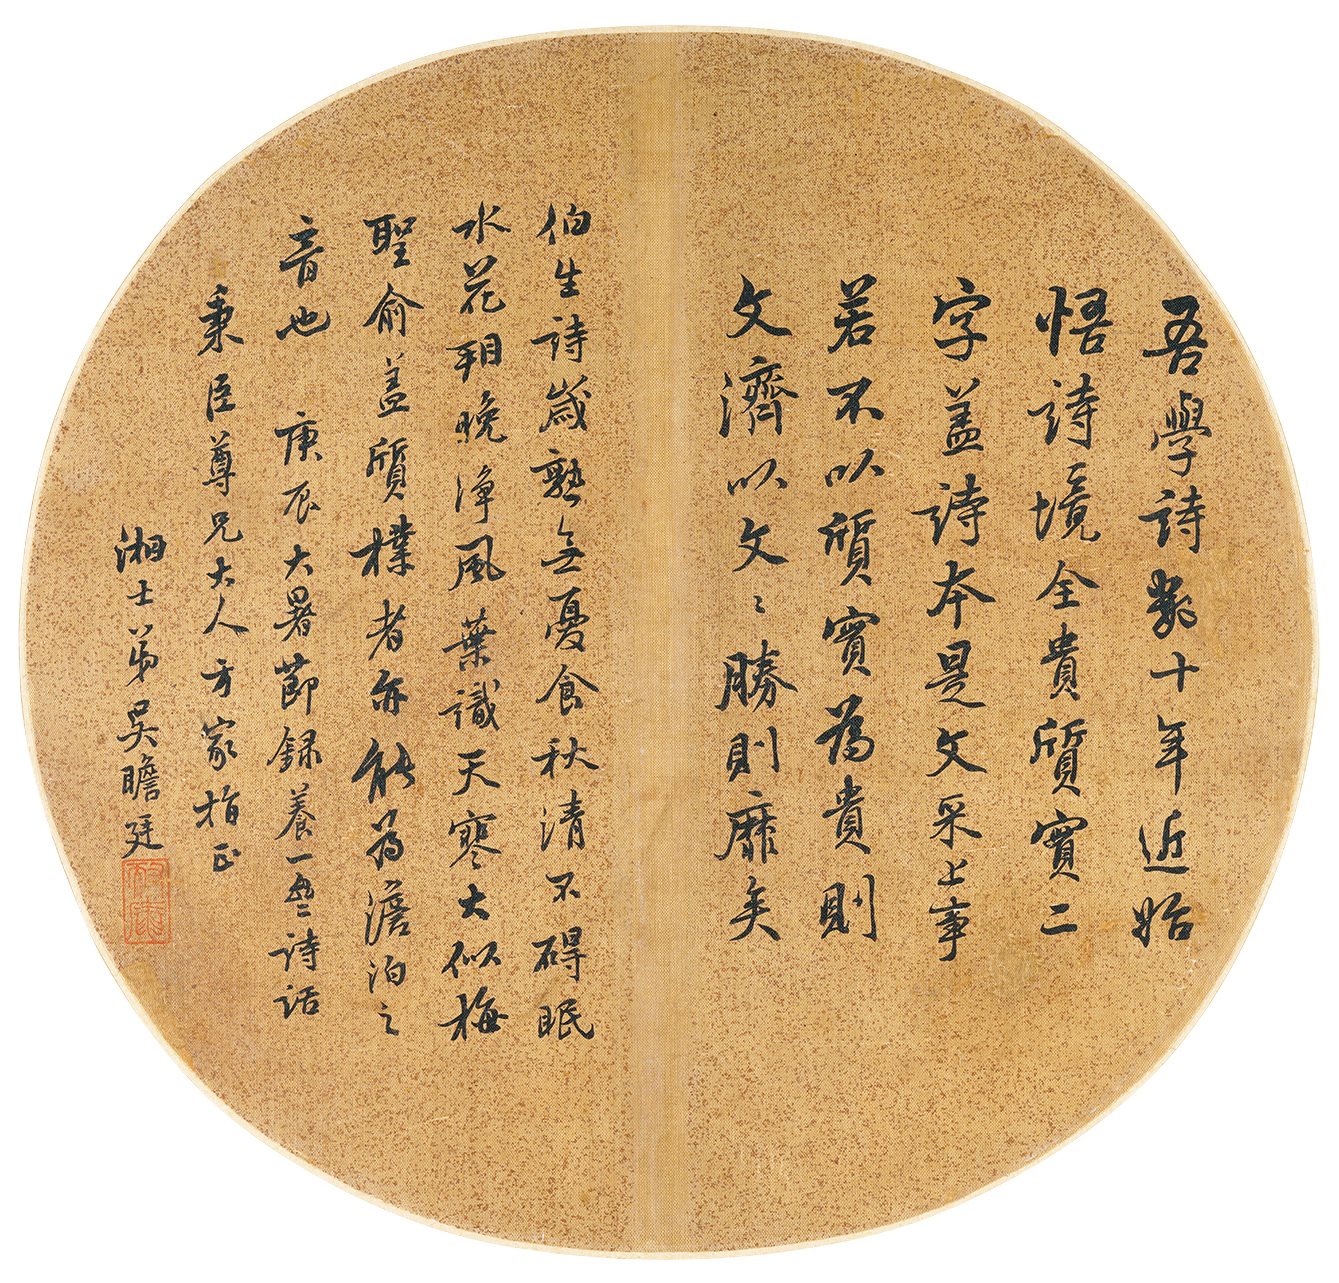 吾學詩數十年近始
悟詩境全貴質實二
字蓋詩本是文采上事
若不以質實為貴則
文濟以文〻勝則靡矣
伯生詩歲熟無憂食秋清不碍眠
水花晚淨風葉識天寒大似梅
聖俞蓋質樸者亦能為澹泊之
音也 庚辰大暑節錄養一齋詩話
秉臣尊兄大人方家指正
湘士弟吳瞻廷